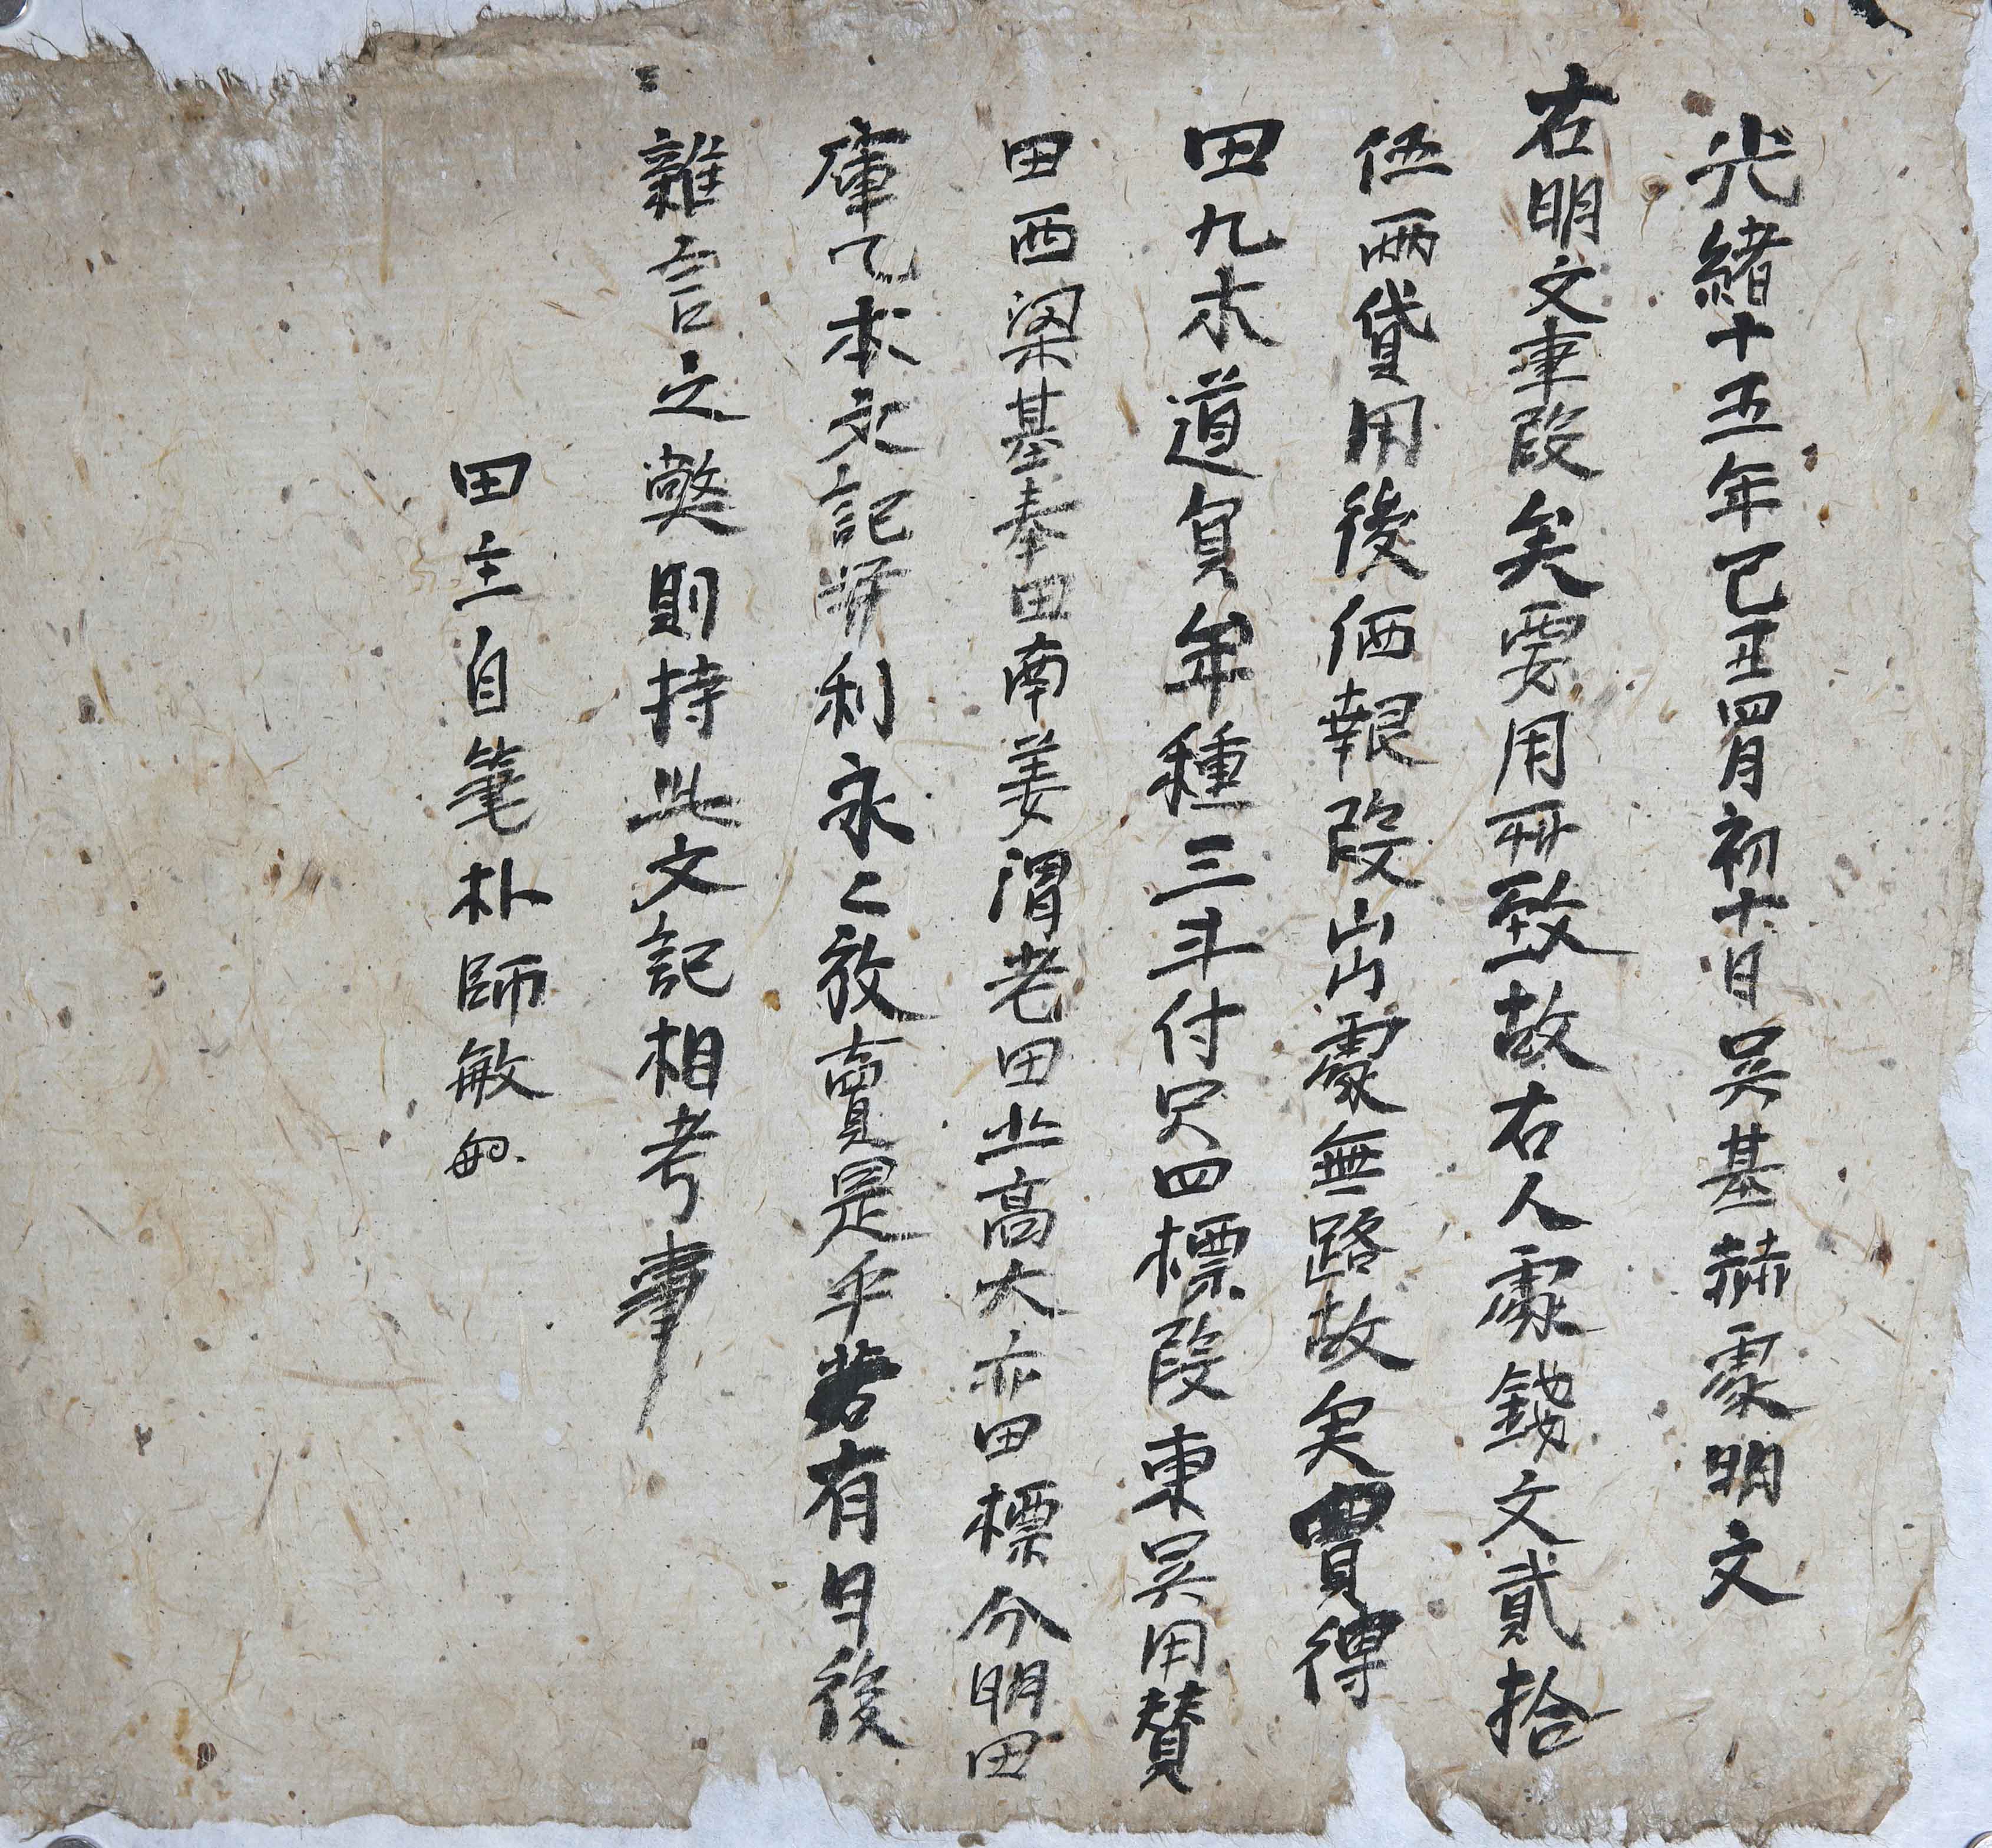 光緖十五年己丑四月初十日吳基赫處明文
右明文事段矣要用所致故右人處錢文貳拾
伍兩貸用後価報段出處無路故矣買得
田九木道員牟種三斗付只四標段東吳用賛
田西梁基奉田南姜渭老田北高大亦田標分明田
庫乙本文記幷利永〻放賣是乎若有日後
雜言之獘則持此文記相考事
田主自筆朴師敏